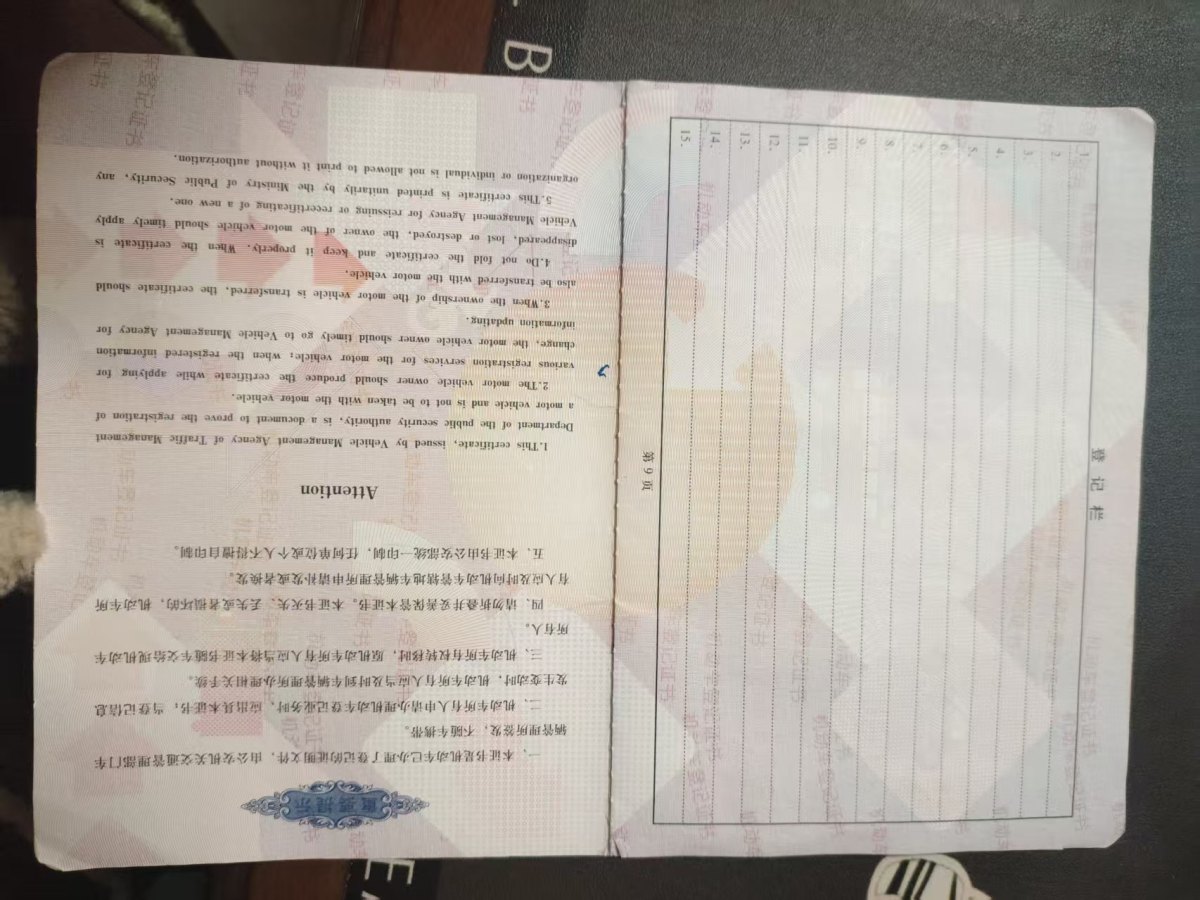 重要提示
一、本证书是机动车已办理了登记的证明文件，由公安机关交通管理部门车
辆管理所签发，不随车携带。
二、机动车所有人申请办理机动车登记业务时，应出具本证书；当登记信息
发生变动时，机动车所有人应当及时到车辆管理所办理相关手续。
三、机动车所有权转移时，原机动车所有人应当将本证书随车交给现机动车
所有人。
四、请勿折叠并妥善保管本证书。本证书灭失、丢失或者损坏的，机动车所
有人应及时向机动车管辖地车辆管理所申请补发或者换发。
五、本证书由公安部统一印制，任何单位或个人不得擅自印制。
Attention
1.This certificate, issued by Vehicle Management Agency of Traffic Management
Department of the public security authority, is a document to prove the registration of
a motor vehicle and is not to be taken with the motor vehicle.
2.The motor vehicle owner should produce the certificate while applying for
various registration services for the motor vehicle; when the registered information
change, the motor vehicle owner should timely go to Vehicle Management Agency for
information updating.
3.When the ownership of the motor vehicle is transferred, the certificate should
also be transferred with the motor vehicle.
4.Do not fold the certificate and keep it properly. When the certificate is
disappeared, lost or destroyed, the owner of the motor vehicle should timely apply
Vehicle Management Agency for reissuing or recertificating of a new one.
5.This certificate is printed unitarily by the Ministry of Public Security, any
organization or individual is not allowed to print it without authorization.
登记栏
1.
2.
3.
4.
5.
6.
7.
8.
9.
10.
11.
12.
13.
14.
15.
第9页
B